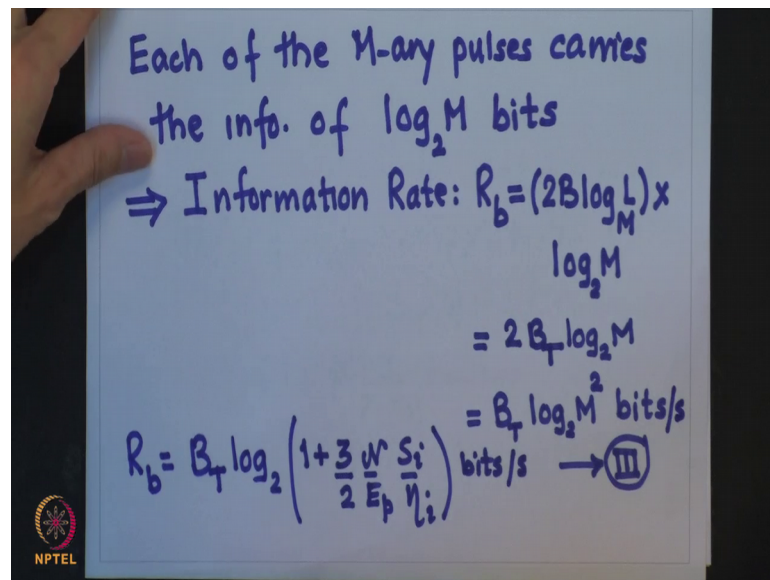 Each of the M-ary pulses carries
the info. of log₂M bits
⇒ Information Rate: R_b=(2B log_M L)×
log₂M
= 2 B_T log₂M
= B_T log₂M² bits/s
R_b= B_T log₂(1+ 3/2 𝒩/E_p S_i/η_i) bits/s → III
NPTEL